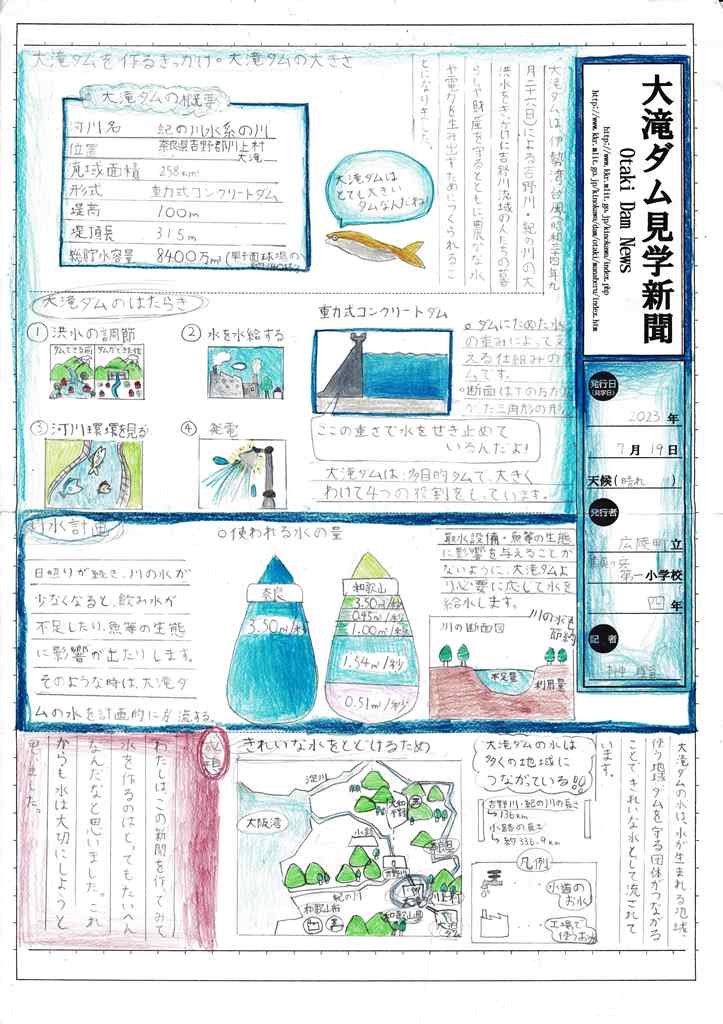 大滝ダム見学新聞
Otaki Dam News
http://www.kkr.mlit.go.jp/kinokawa/index.php
発行日
(見学日)
2023年
7月19日
天候(晴れ)
発行者
広陵町立
第一小学校
四年
記者
大滝ダムを作るきっかけ・大滝ダムの大きさ
大滝ダムは、伊勢湾台風(昭和三十四年九
月二十六日)による吉野川・紀の川の大
洪水をきっかけに吉野川流域の人たちの暮
らしや財産を守るとともに豊かな水
や電力を生み出すためにつくられるこ
とになりました。
大滝ダムの概要
河川名 紀の川水系の川
位置 奈良県吉野郡川上村
大滝
流域面積 258km²
形式 重力式コンクリートダム
堤高 100m
堤頂長 315m
総貯水容量 8400万m³(甲子園球場の
大滝ダムは
とても大きい
ダムなんだね!
大滝ダムのはたらき
① 洪水の調節
ダムできる前 ダムができた後
② 水を水給する
③ 河川環境を見る
④ 発電
重力式コンクリートダム
○ダムにためた水を
の重みによって支
える仕組みのダ
ムです。
○断面は下の方がひろ
がった三角形の形
ここの重さで水をせき止めて
いるんだよ!
大滝ダムは、多目的ダムで、大きく
わけて4つの役割をしています。
利水計画
日照りが続き、川の水が
少なくなると、飲み水が
不足したり、魚等の生態
に影響が出たりします。
そのような時は、大滝ダ
ムの水を計画的に放流する。
○使われる水の量
奈良
3.50m³/秒
和歌山
3.50m³/秒
0.45m³/秒
1.00m³/秒
1.54m³/秒
0.51m³/秒
取水設備・魚等の生態
に影響を与えることが
ないように、大滝ダムよ
り必要に応じて水を
給水します。
川の断面図
川の水を
節約
不足量
利用量
大滝ダムの水は、水が生まれる地域
使う地域、ダムを守る団体がつながる
ことできれいな水として流されて
います。
きれいな水をとどけるため
淀川
大阪湾
大和
平野
紀の川
和歌山市
和歌山県
吉野川
川上村
大滝
ダム
大滝ダムの水は
多くの地域に
つながっている!!
吉野川・紀の川の長さ
→136km
水路の長さ
→約336.9km
凡例
水道の
お水
工場で
使うお水
感想
わたしは、この新聞を作ってみて
水を作るのはとってもたいへん
なんだなと思いました。これ
からも水は大切にしようと
思いました。